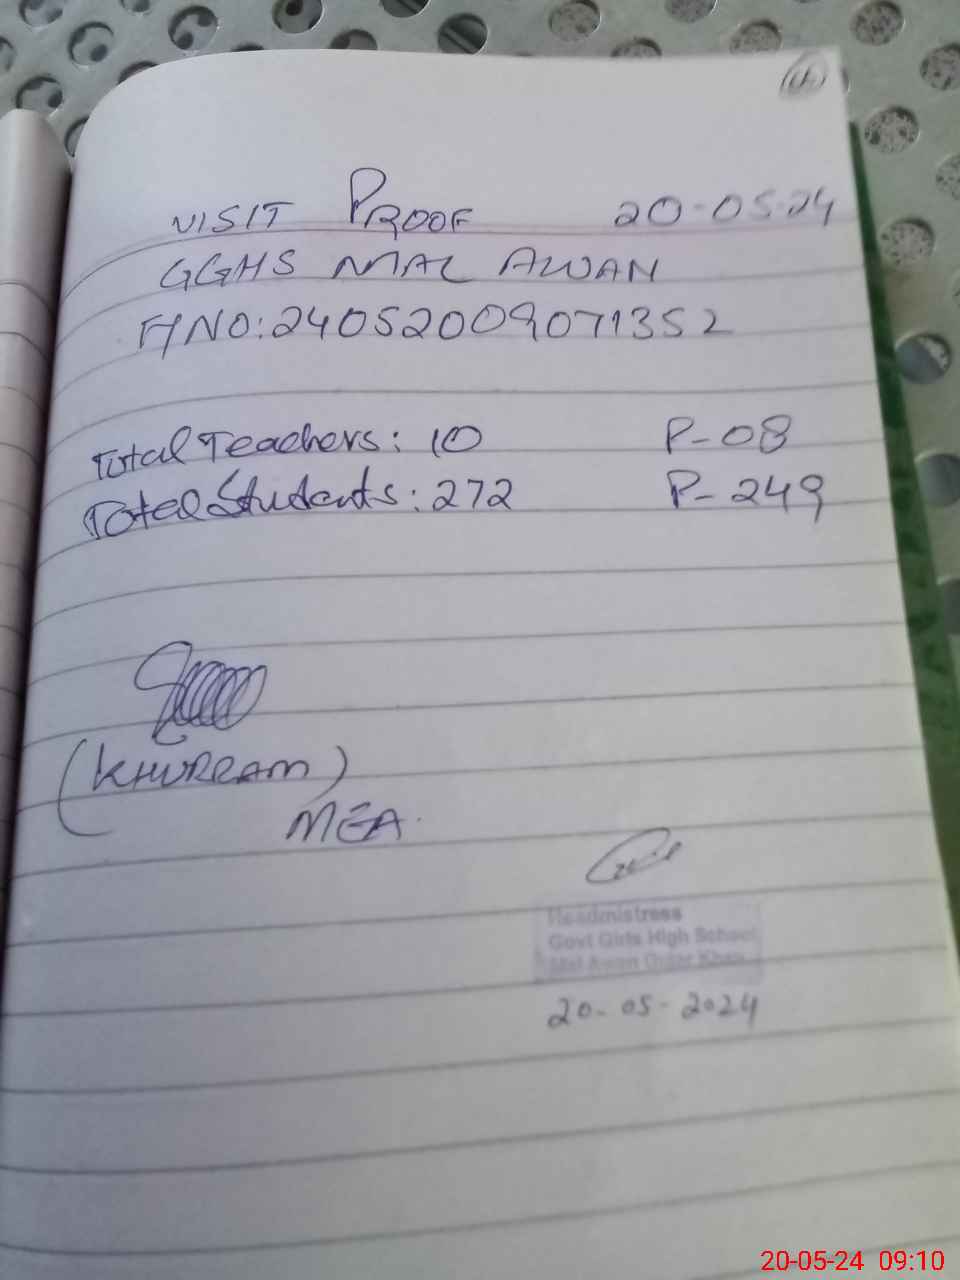 VISIT PROOF 20-05-24
GGHS MAL AWAN
F/NO:24052009071352
Total Teachers: 10 P-08
Total Students: 272 P-249
(KHURRAM)
MEA.
Headmistress
Govt Girls High School
Mal Awan Gujar Khan
20-05-2024
20-05-24 09:10